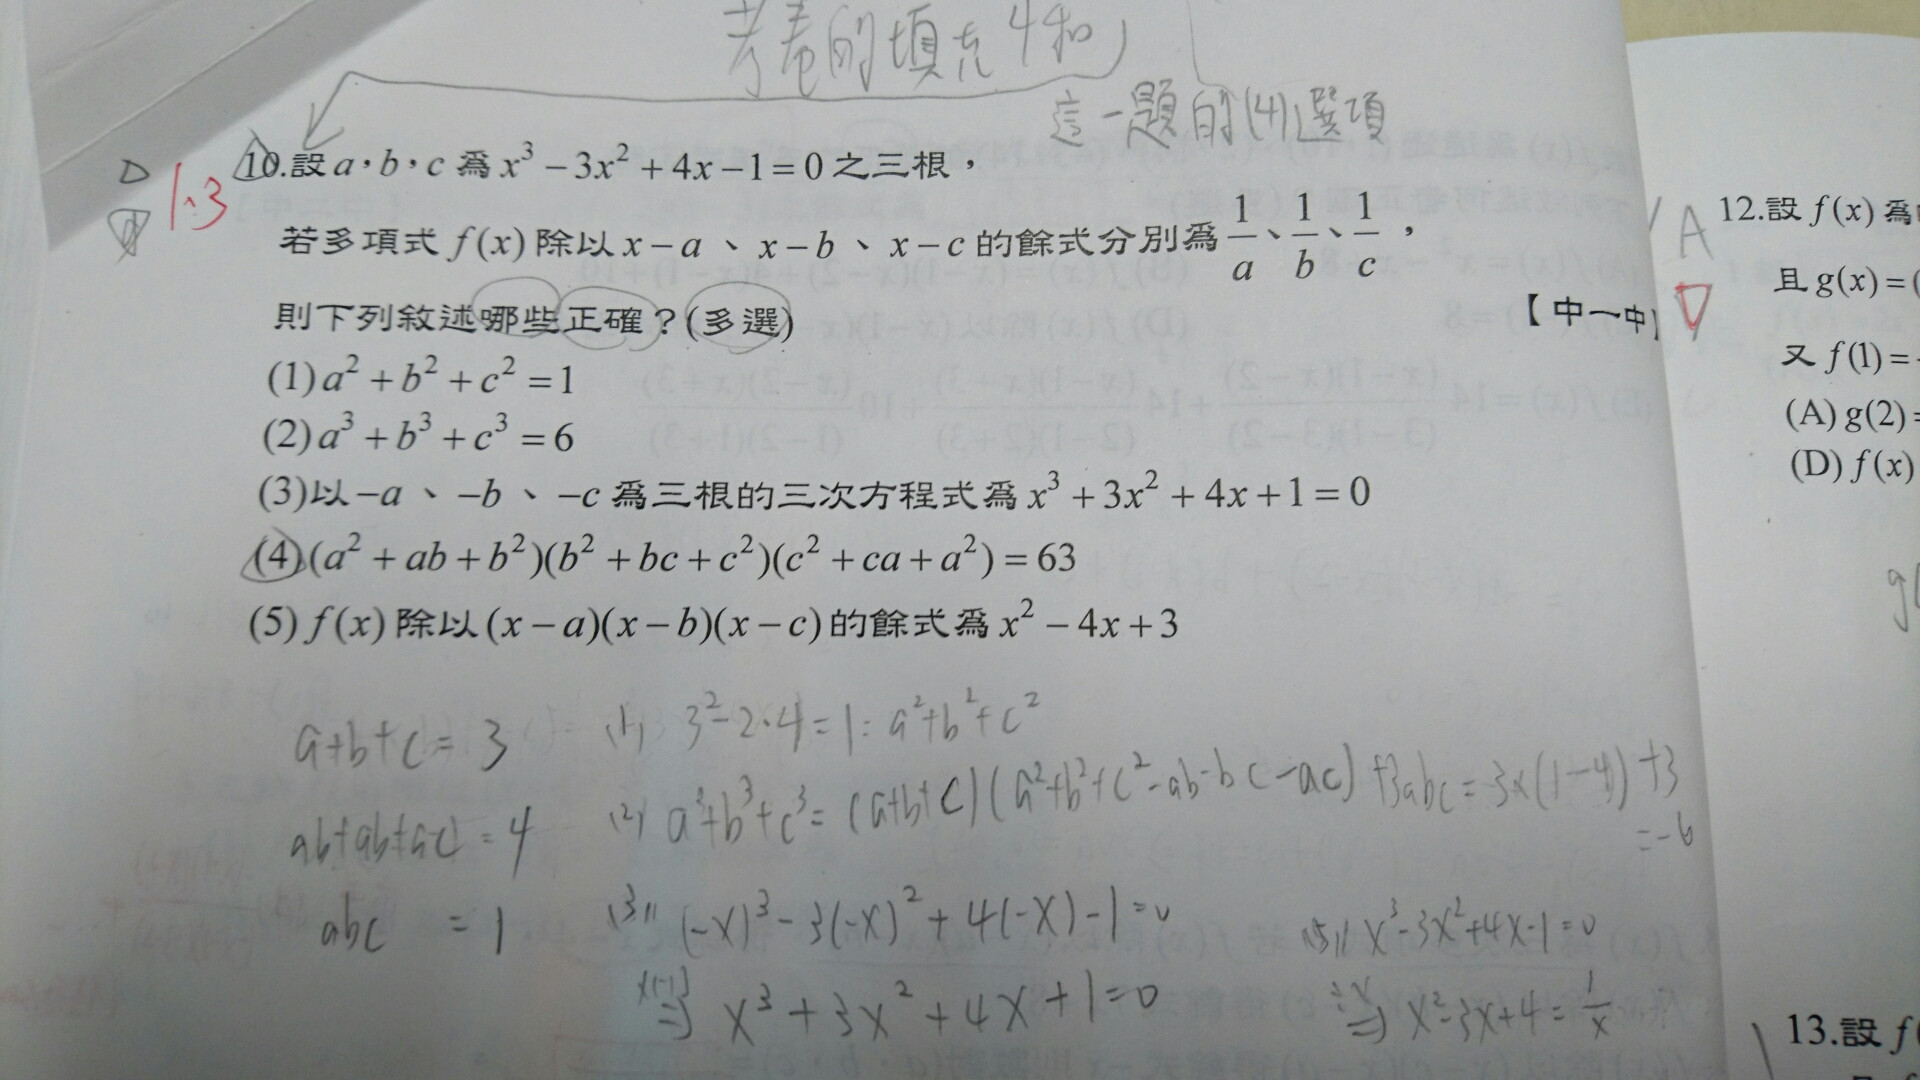 考卷的填充4和
這一題的(4)選項
1.3
10.設 a,b,c 為 x³ − 3x² + 4x − 1 = 0 之三根,
若多項式 f(x) 除以 x − a 、 x − b 、 x − c 的餘式分別為 1/a 、 1/b 、 1/c ,
則下列敘述哪些正確?(多選) 【中一中】
(1) a² + b² + c² = 1
(2) a³ + b³ + c³ = 6
(3)以 −a 、 −b 、 −c 為三根的三次方程式為 x³ + 3x² + 4x + 1 = 0
(4) (a² + ab + b²)(b² + bc + c²)(c² + ca + a²) = 63
(5) f(x) 除以 (x − a)(x − b)(x − c) 的餘式為 x² − 4x + 3
a+b+c = 3
ab+ab+ac = 4
abc = 1
(1) 3² − 2·4 = 1 = a²+b²+c²
(2) a³+b³+c³ = (a+b+c)(a²+b²+c²−ab−bc−ac)+3abc = 3×(1−4)+3
= −6
(3) (−x)³ − 3(−x)² + 4(−x) − 1 = 0
×(−1) ⇒ x³ + 3x² + 4x + 1 = 0
(5) x³ − 3x² + 4x − 1 = 0
÷x ⇒ x² − 3x + 4 = 1/x
A
12.設 f(x) 為
且 g(x) = (
又 f(1) =
(A) g(2) =
(D) f(x)
13.設 f(